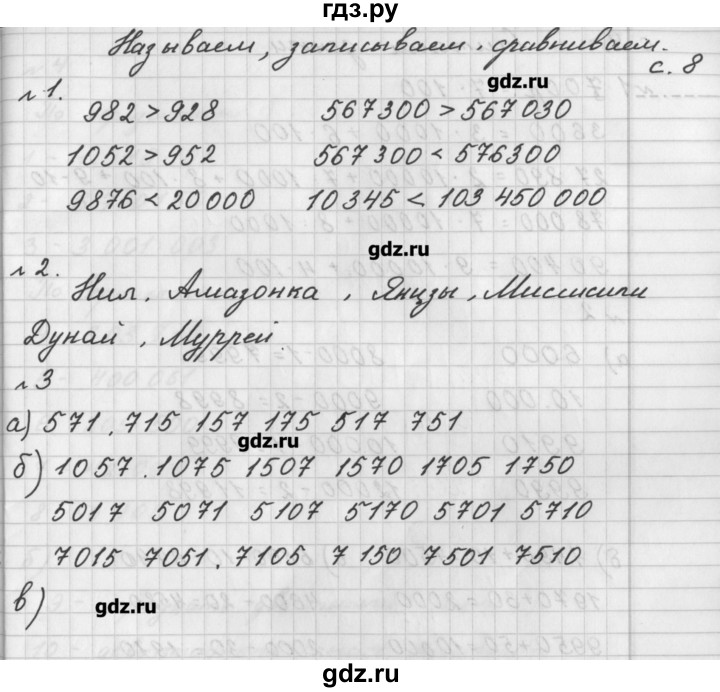 гдз.ру
Называем, записываем, сравниваем.
с. 8
gdz.ru
№1.
982 > 928 567300 > 567030
1052 > 952 567 300 < 576300
9876 < 20 000 10 345 < 103 450 000
gdz.ru
№2.
Нил, Амазонка, Янцзы, Миссисипи
Дунай, Муррей.
№3
а) 571, 715 157 175 517 751
gdz.ru
б) 1057, 1075 1507 1570 1705 1750
5017 5071 5107 5170 5701 5710
7015 7051, 7105 7150 7501 7510
в)
gdz.ru
gdz.ru